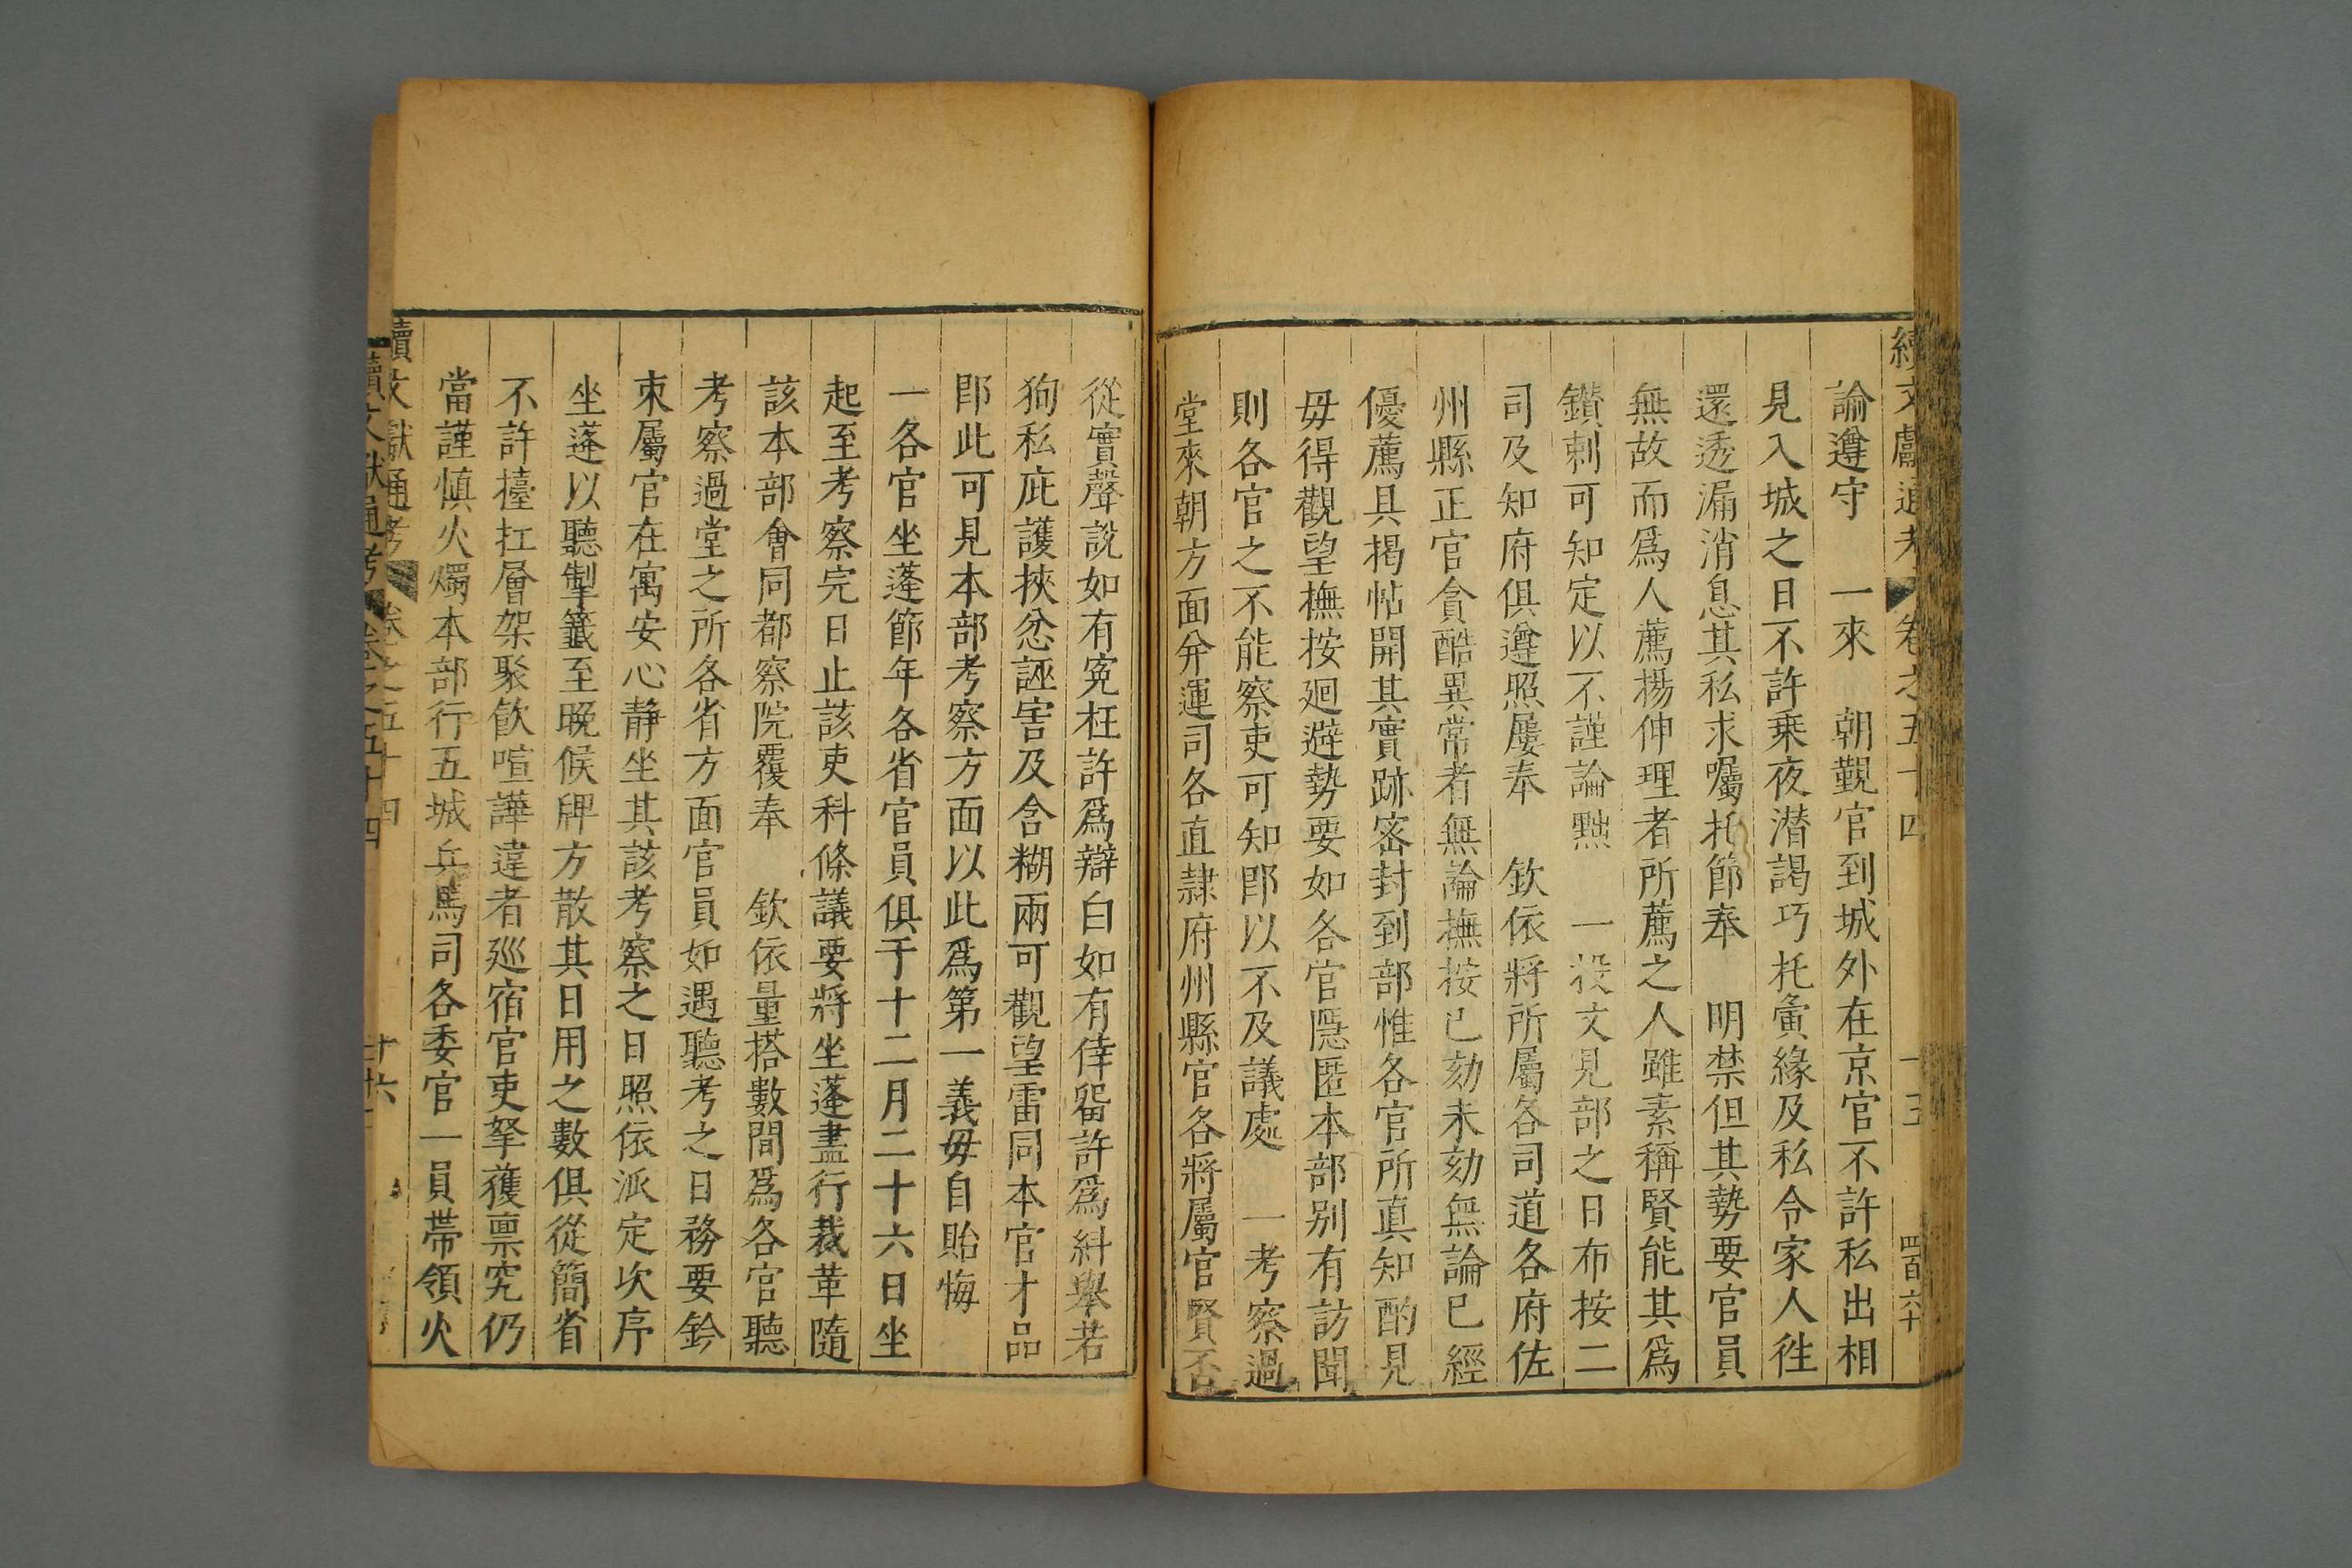 續文獻通考 卷之五十四 四百六十
諭遵守 一來 朝覲官到城外在京官不許私出相
見入城之日不許乗夜潜謁巧托夤緣及私令家人徃
還透漏消息其私求囑托節奉 明禁但其勢要官員
無故而爲人薦揚伸理者所薦之人雖素稱賢能其爲
鑚刺可知定以不謹論黜 一投文見部之日布按二
司及知府俱遵照屢奉 欽依將所屬各司道各府佐
州縣正官貪酷異常者無論撫按已劾未劾無論已經
優薦具揭帖開其實跡密封到部惟各官所眞知酌見
毋得觀望撫按廻避勢要如各官隱匿本部别有訪聞
則各官之不能察吏可知卽以不及議處 一考察過
堂來朝方面分運司各直隷府州縣官各將屬官賢否
從實聲説如有寃枉許爲辯白如有倖畱許爲糾舉若
狥私庇護挾忿誣害及含糊兩可觀望雷同本官才品
卽此可見本部考察方面以此爲第一義毋自貽悔
一各官坐蓬節年各省官員俱于十二月二十六日坐
起至考察完日止該吏科條議要將坐蓬盡行裁革隨
該本部會同都察院覆奉 欽依量搭數間爲各官聽
考察過堂之所各省方面官員如遇聽考之日務要鈐
束屬官在寓安心靜坐其該考察之日照依派定次序
坐蓬以聽掣籤至晚候牌方散其日用之數俱從簡省
不許擡扛層架聚飮喧譁違者廵宿官吏拏獲禀究仍
當謹慎火燭本部行五城兵馬司各委官一員帶領火
續文獻通考 卷之五十四 十六